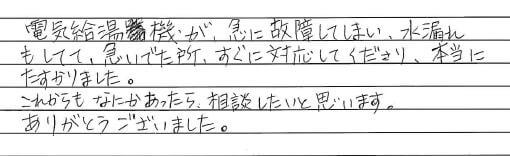 電気給湯機が、急に故障してしまい、水漏れ
もしてて、急いでた所、すぐに対応してくださり、本当に
たすかりました。
これからもなにかあったら、相談したいと思います。
ありがとうございました。